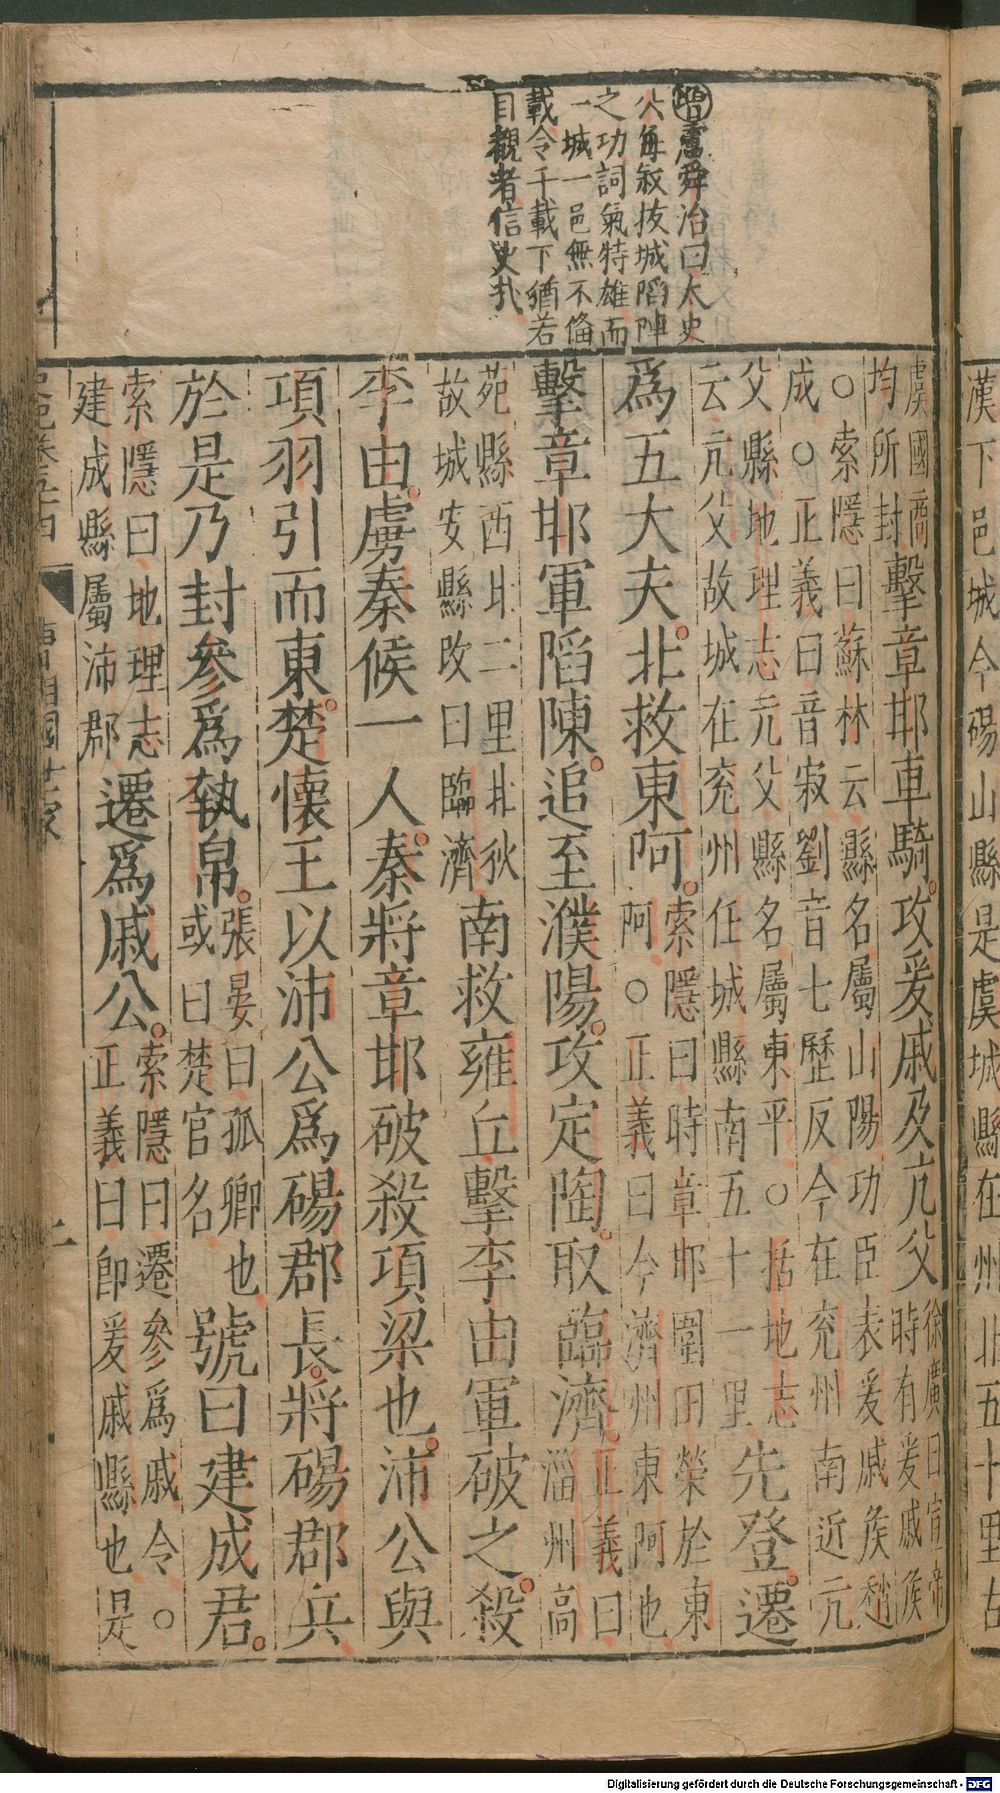 漢下邑城今碭山縣是虞城縣在州北五十里古
盧舜治曰太史
公每敍拔城陷陣
之功詞氣特雄而
一城一邑無不偹
載令千載下猶若
目觀者信史㢤
虞國商
均所封
擊章邯車騎攻爰戚及亢父
徐廣曰宣帝
時有爰戚侯
○索隱曰蘇林云縣名屬山陽功臣表爰戚侯趙
成○正義曰音寂劉音七歷反今在兖州南近亢
父縣地理志亢父縣名屬東平○括地志
云亢父故城在兖州任城縣南五十一里
先登遷
爲五大夫北救東阿
索隱曰時章邯圍田榮於東
阿○正義曰今濟州東阿也
擊章邯軍陷陳追至濮陽攻定陶取臨濟
正義曰
淄州高
苑縣西北二里北狄
故城安縣改曰臨濟
南救雍丘擊李由軍破之殺
李由虜秦候一人秦將章邯破殺項梁也沛公與
項羽引而東楚懷王以沛公爲碭郡長將碭郡兵
於是乃封參爲執帛
張晏曰孤卿也
或曰楚官名
號曰建成君
索隱曰地理志
建成縣屬沛郡
遷爲戚公
索隱曰遷參爲戚令○
正義曰即爰戚縣也是
史記卷五十四
曹相國世家
二
Digitalisierung gefördert durch die Deutsche Forschungsgemeinschaft - DFG